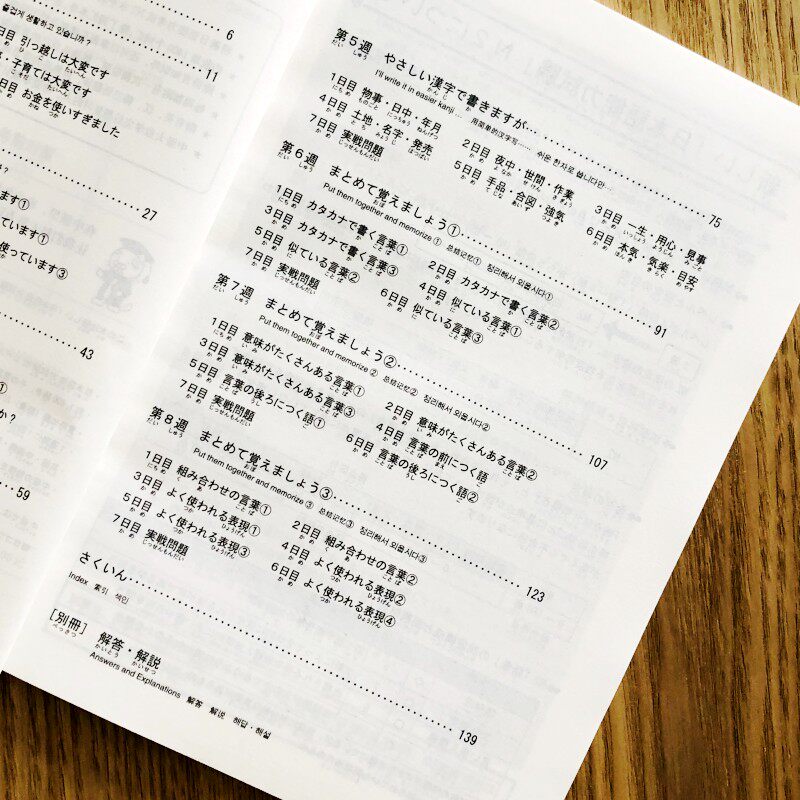 즐겁게 생활하고 있습니까?
6
日目 引っ越しは大変です
子育ては大変です
11
日目 お金を使いすぎました
27
ます①
ています①
使っています③
43
①
か?
59
第5週 やさしい漢字で書きますが… 75
I'll write it in easier kanji … 用简单的汉字写…… 쉬운 한자로 씁니다만…
1日目 物事・日中・年月 2日目 夜中・世間・作業 3日目 一生・用心・見事
4日目 土地・名字・発売 5日目 手品・合図・強気 6日目 本気・気楽・目安
7日目 実戦問題
第6週 まとめて覚えましょう① 91
Put them together and memorize ① 总结记忆① 정리해서 외웁시다①
1日目 カタカナで書く言葉① 2日目 カタカナで書く言葉②
3日目 カタカナで書く言葉③ 4日目 似ている言葉①
5日目 似ている言葉② 6日目 似ている言葉③
7日目 実戦問題
第7週 まとめて覚えましょう② 107
Put them together and memorize ② 总结记忆② 정리해서 외웁시다②
1日目 意味がたくさんある言葉① 2日目 意味がたくさんある言葉②
3日目 意味がたくさんある言葉③ 4日目 言葉の前につく語
5日目 言葉の後ろにつく語① 6日目 言葉の後ろにつく語②
7日目 実戦問題
第8週 まとめて覚えましょう③ 123
Put them together and memorize ③ 总结记忆③ 정리해서 외웁시다③
1日目 組み合わせの言葉① 2日目 組み合わせの言葉②
3日目 よく使われる表現① 4日目 よく使われる表現②
5日目 よく使われる表現③ 6日目 よく使われる表現④
7日目 実戦問題
さくいん 139
Index 索引 색인
[別冊] 解答・解説
Answers and Explanations 解答 解说 해답・해설